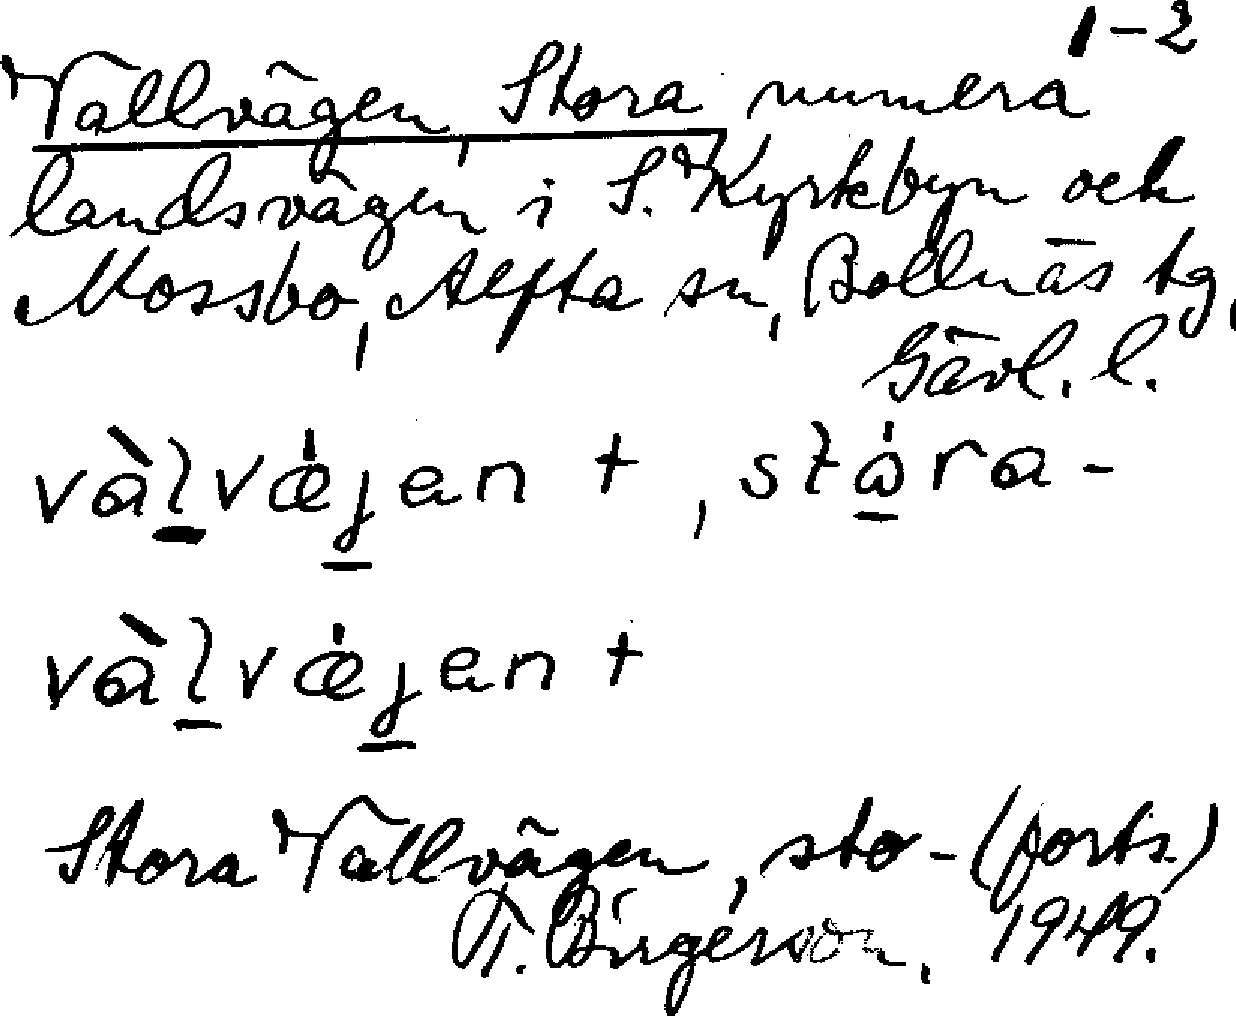 1-2
Vallvägen, Stora numera
landsvägen i S. Kyrkbyn och
Mossbo, Alfta sn, Bollnäs tg,
Gävl. l.
vàl̠væ̍j̠en +, stå̠̍ra-
vàl̠væ̍j̠en +
Stora Vallvägen, sto-(forts.)
T. Birgerson. 1949.